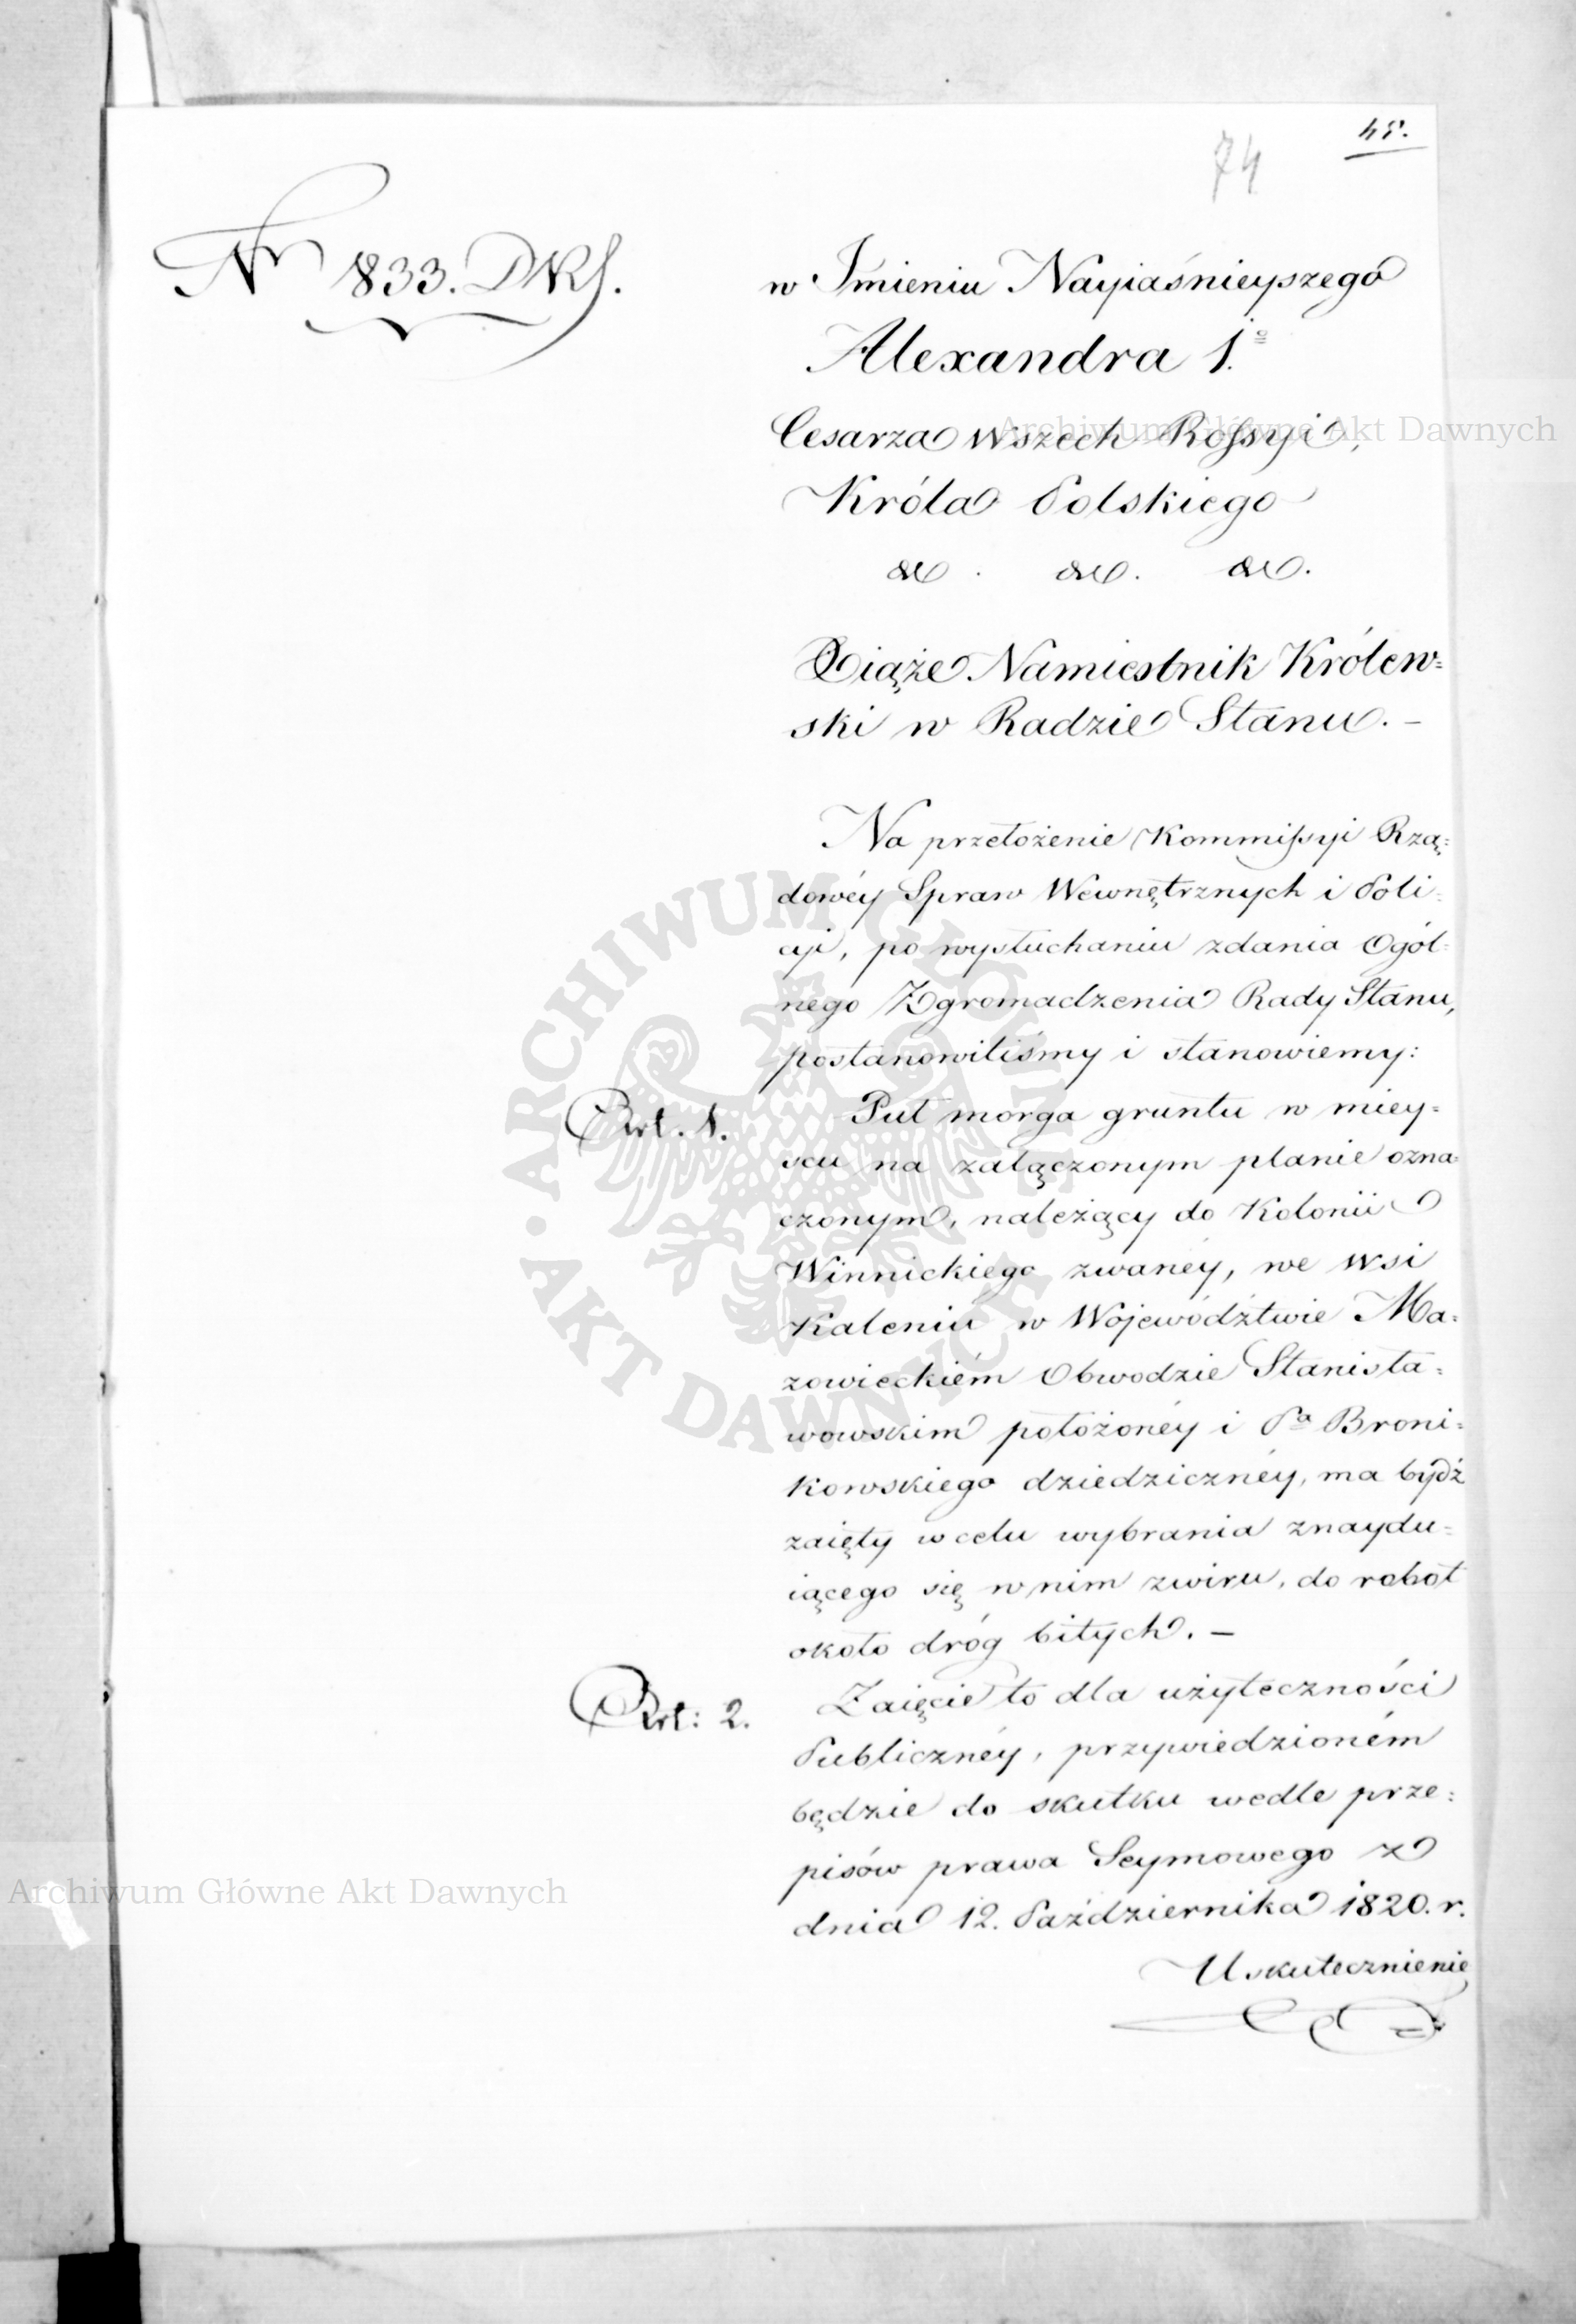 45.
74
Nr 833. DRS.
w Imieniu Nayiaśnieyszego
Alexandra 1.o
Cesarza Wszech Rossyi,
Króla Polskiego
&c. &c. &c.
Xiąże Namiestnik Królew=
ski w Radzie Stanu. –
Na przełożenie Kommissyi Rzą=
dowéy Spraw Wewnętrznych i Poli=
cyi, po wysłuchaniu zdania Ogól=
nego Zgromadzenia Rady Stanu,
postanowiliśmy i stanowiemy:
Art. 1. Puł morga gruntu w miey=
scu na załączonym planie ozna=
czonym, należący do Kolonii
Winnickiego zwanéy, we wsi
Kaleniu w Wojewódźtwie Ma=
zowieckiém Obwodzie Stanisła=
wowskim położonéy i Pa Broni=
kowskiego dziedzicznéy, ma bydź
zaięty w celu wybrania znaydu=
iącego się w nim zwiru, do robot
około dróg bitych. –
Art: 2. Zaięcie to dla użyteczności
Publicznéy, przywiedzioném
będzie do skutku wedle prze=
pisów prawa Seymowego z
dnia 12. Października 1820. r.
Uskutecznienie
Archiwum Główne Akt Dawnych
ARCHIWUM GŁÓWNE AKT DAWNYCH
Archiwum Główne Akt Dawnych